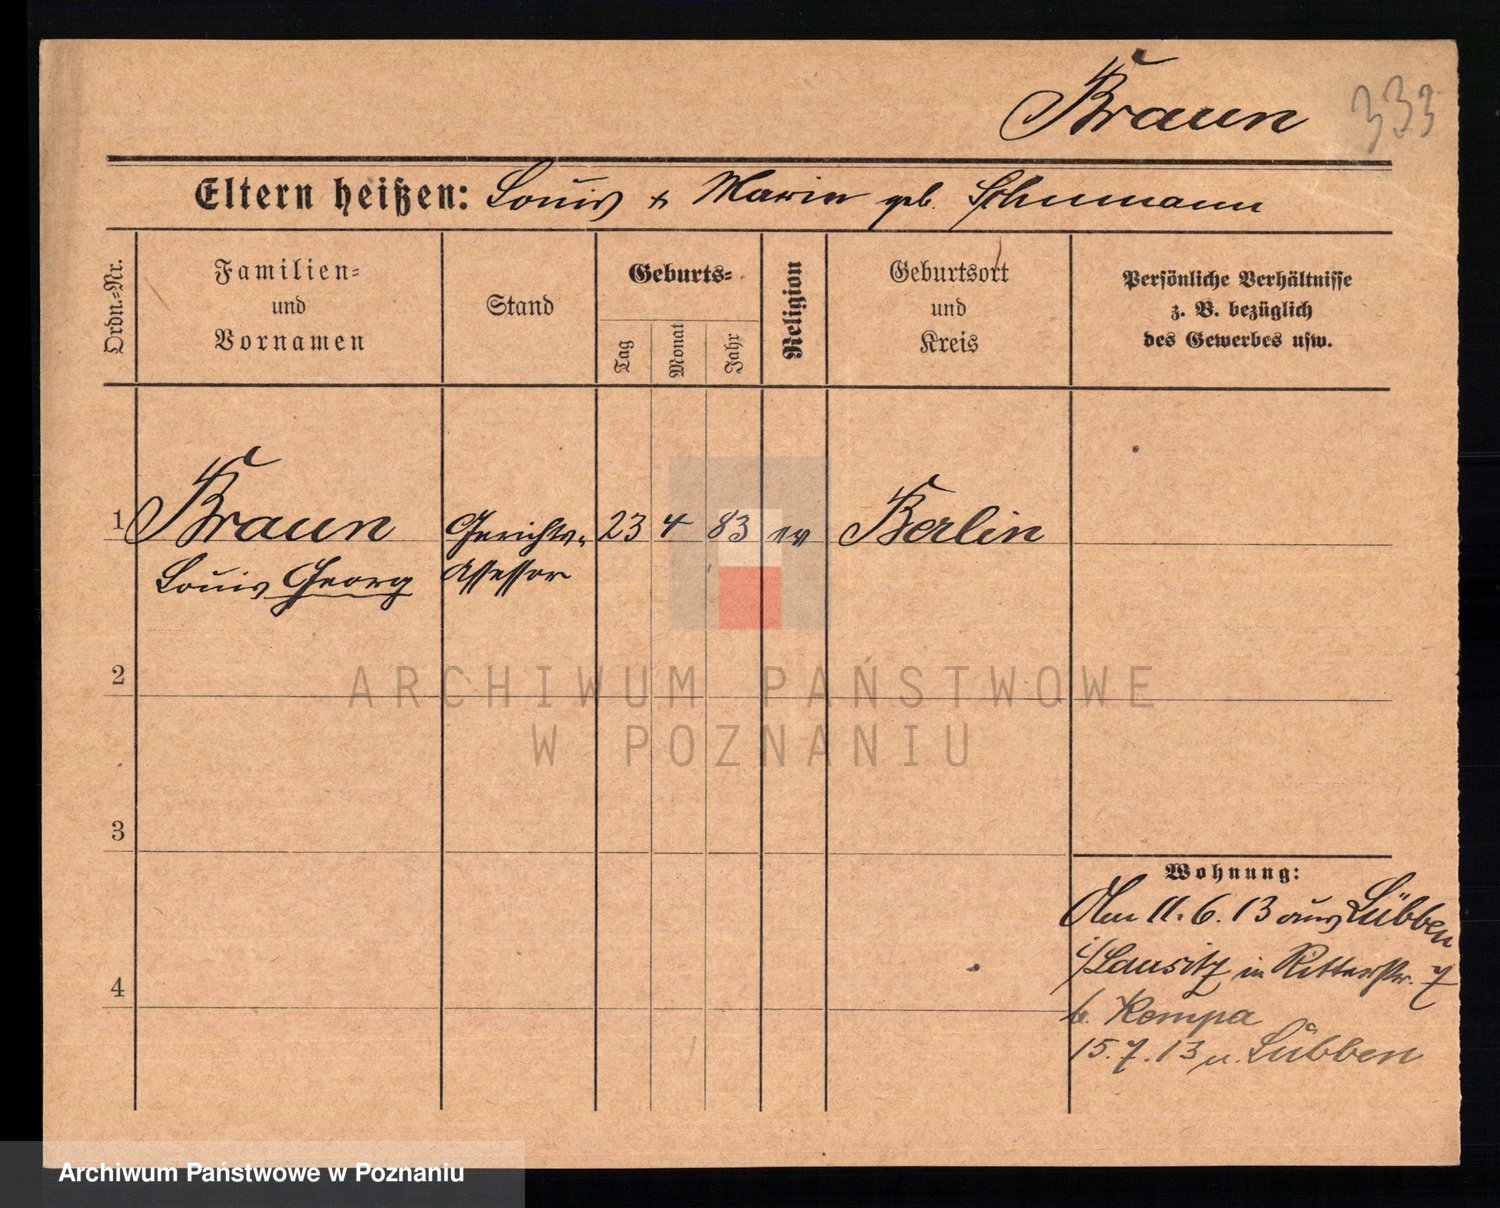 Braun 333
Eltern heißen: Louis & Marie geb. Schumann
Ordn.=Nr.
Familien=
und
Vornamen
Stand
Geburts=
Tag
Monat
Jahr
Religion
Geburtsort
und
Kreis
Persönliche Verhältnisse
z. B. bezüglich
des Gewerbes usw.
1 Braun Gerichts- 23 4 83 ev Berlin
Louis Georg Assessor
2
ARCHIWUM PAŃSTWOWE
W POZNANIU
3
Wohnung:
Am 11.6.13 aus Lübben
i/Lausitz in Ritterstr. 7
4
b. Kempa
15.7.13 n. Lübben
Archiwum Państwowe w Poznaniu